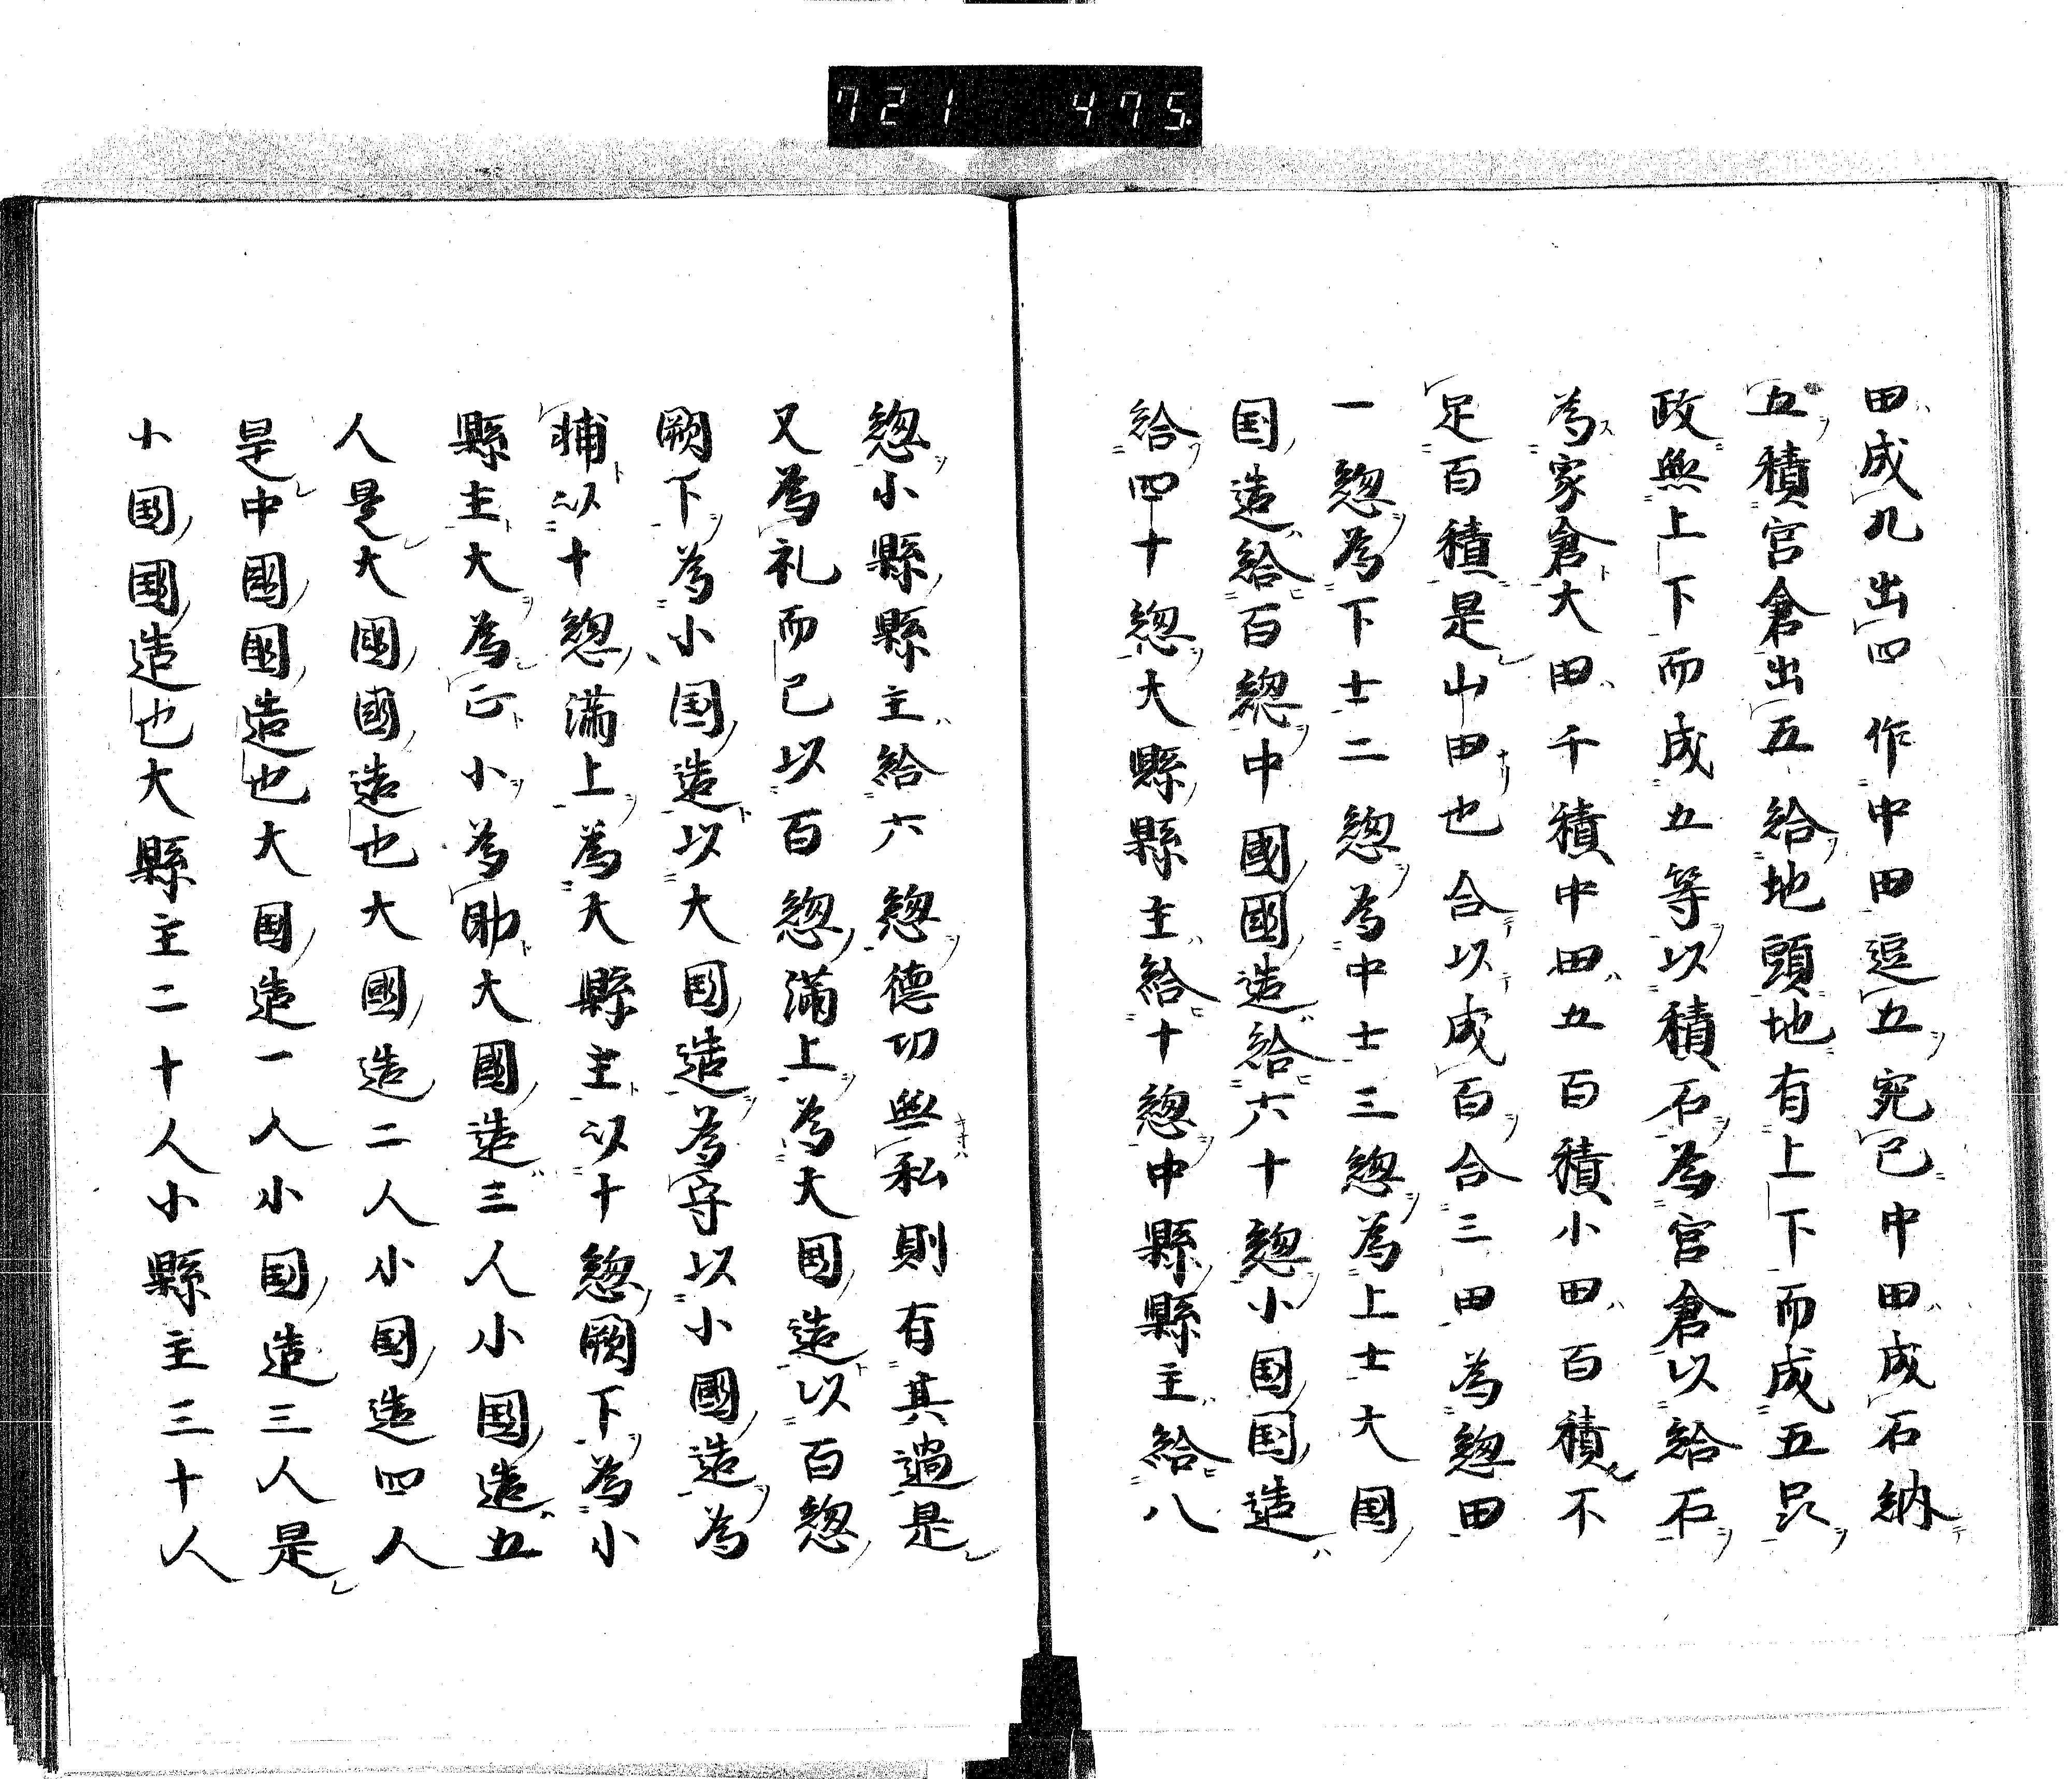 721 475.
田成九出四作中田逗五宛已中田成石納
五積官倉出五給地頭地有上下而成五品
政無上下而成五等以積石為官倉以給石
為家倉大田千積中田五百積小田百積不
足百積是山田也合以成百合三田為惣田
一惣為下士二惣為中士三惣為上士大国
国造給百惣中國國造給六十惣小国国造
給四十惣大縣縣主給十惣中縣縣主給八
惣小縣縣主給六惣德功無私則有其過是
又為礼而已以百惣滿上為大国造以百惣
闕下為小国造以大国造為守以小國造為
輔以十惣滿上為大縣主以十惣闕下為小
縣主大為正小為助大國造三人小国造五
人是大國國造也大國造二人小国造四人
是中國國造也大国造一人小国造三人是
小国国造也大縣主二十人小縣主三十人